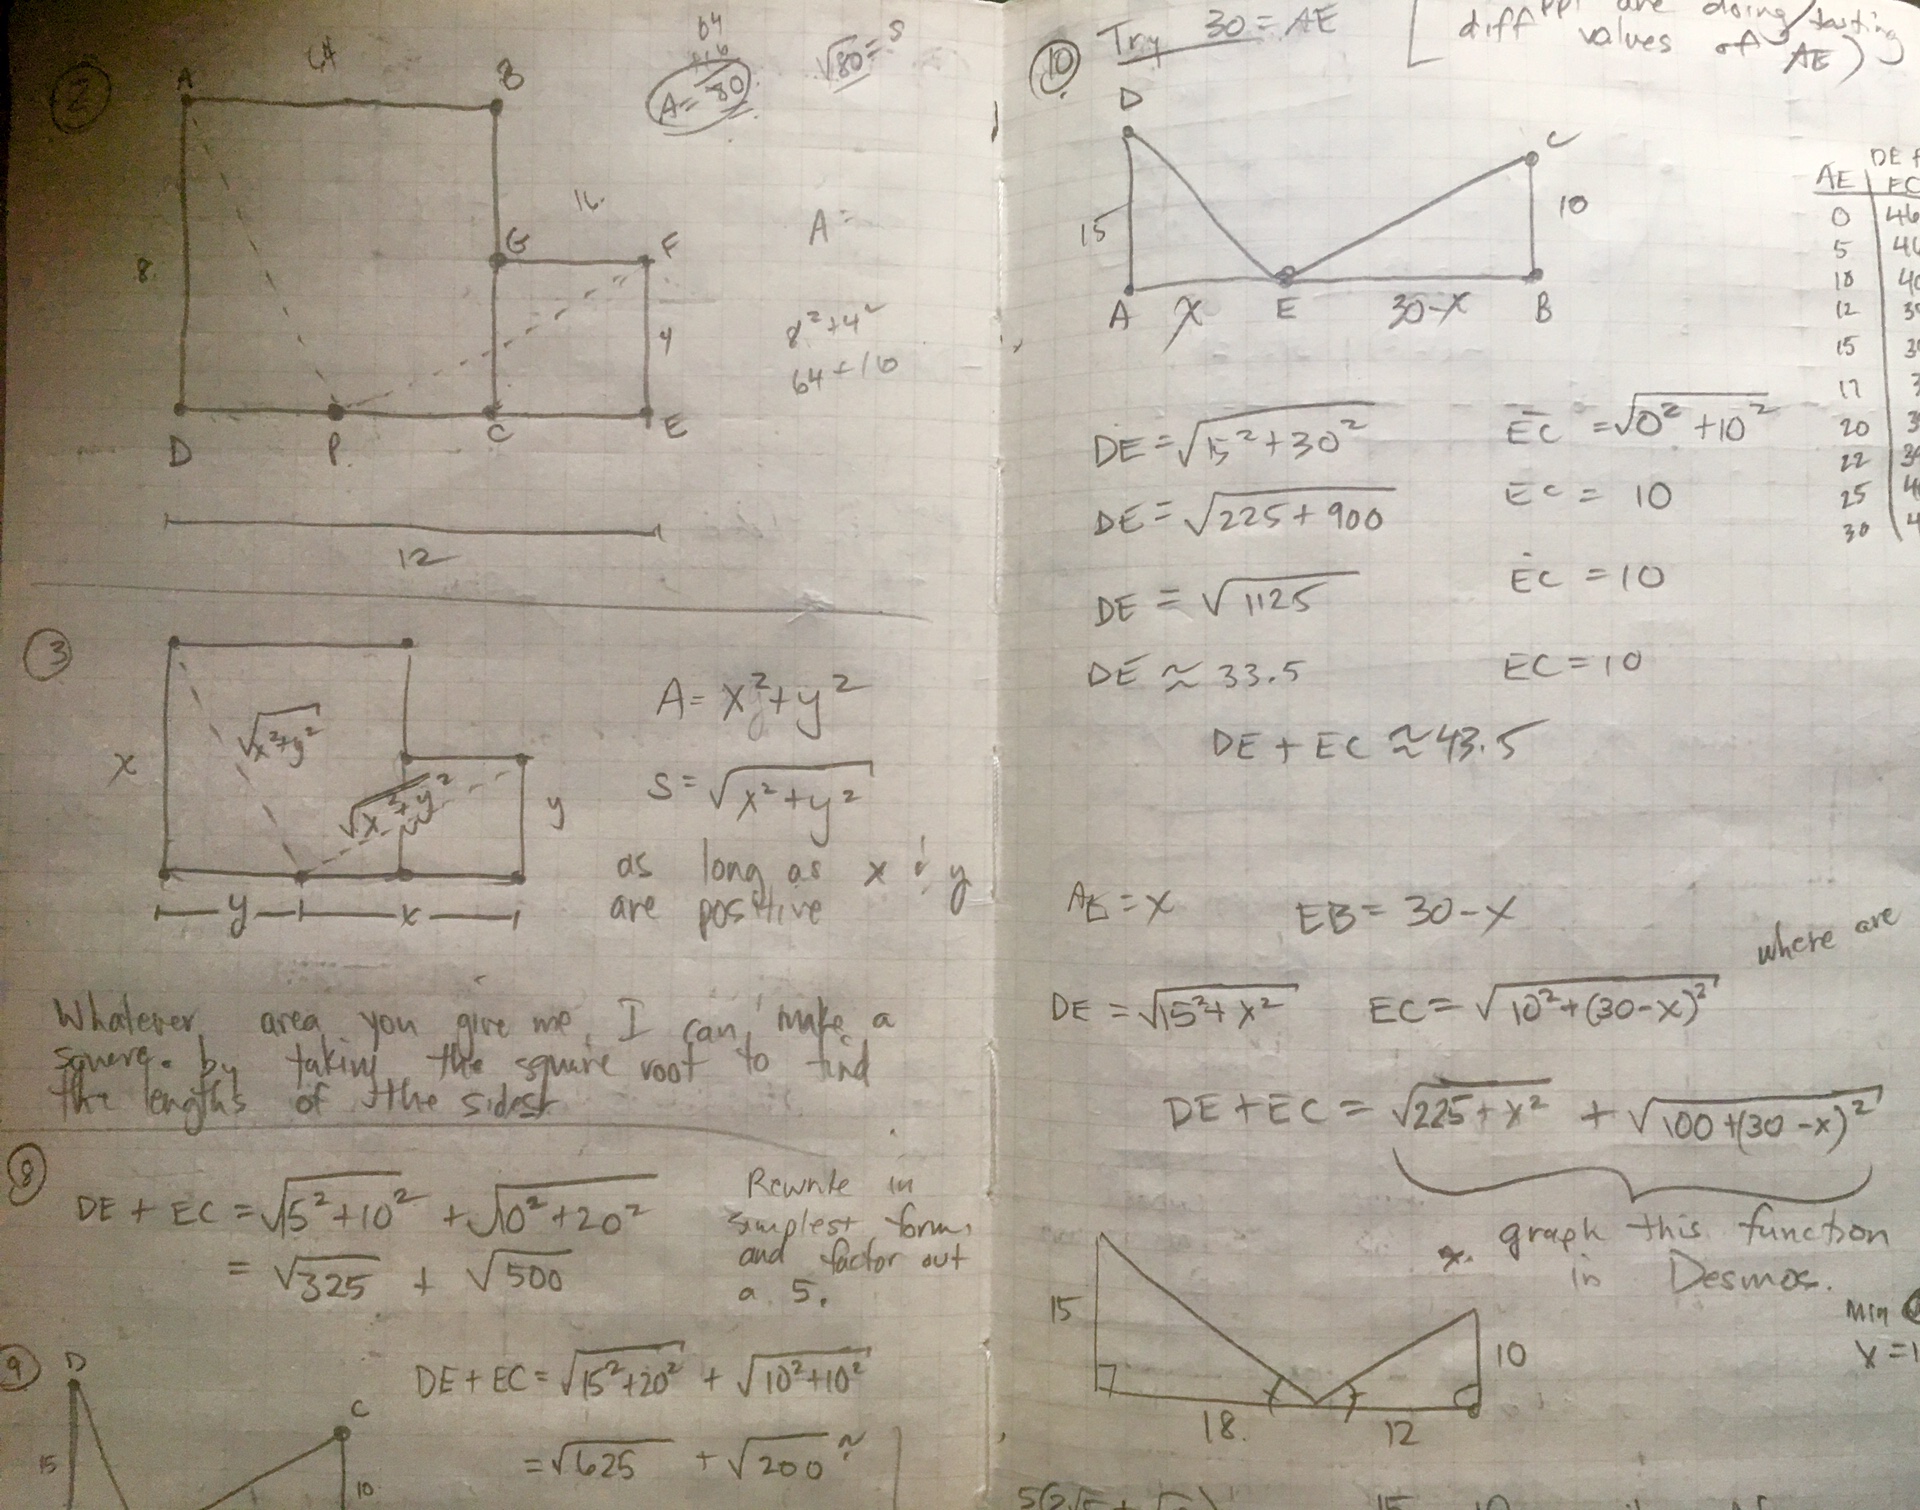 ②
A
64
B
64
+16
A=80
√80 = S
16
G
F
A=
8
4
8²+4²
64+16
D
P
C
E
12
③
x
√x²+y²
√x²+y²
y
A= x²+y²
S=√x²+y²
as long as x & y
are positive
y
x
Whatever area you give me, I can make a
square by taking the square root to find
the lengths of the sides
⑧
DE + EC = √15²+10² + √10²+20²
= √325 + √500
Rewrite in
simplest form,
and factor out
a 5.
⑨
D
C
15
10
DE+EC=√15²+20² + √10²+10²
=√625 + √200 ≈
⑩
Try 30=AE
are doing/testing
diff values of AE)
D
C
15
10
A
x
E
30-x
B
DE +
AE
EC
0
5
10
12
15
17
20
22
25
30
DE=√15²+30²
EC =√0²+10²
DE=√225+900
EC = 10
DE = √1125
EC = 10
DE ≈ 33.5
EC=10
DE + EC ≈ 43.5
AE=x
EB= 30-x
where are
DE =√15²+x²
EC= √10²+(30-x)²
DE+EC = √225+x² + √100+(30-x)²
graph this function
in Desmos.
15
10
18
12
Min
x=1